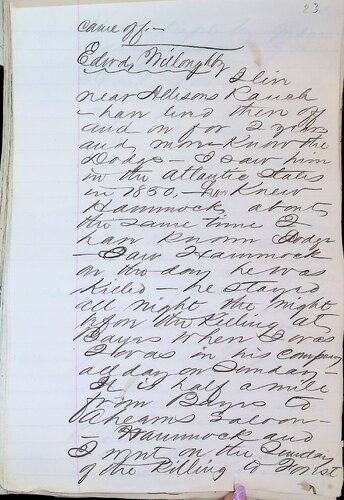 23
came off.—
Edwd, Willoughby
I live
near Allisons Ranch
— hav lived then off
and on for 2 years
and, more — Know the
Dodge — I saw him
in the Atlantic States
in 1850. — Knew
Hammock, about
the same time I
hav known Dodge
— Saw Hammock
on the day he was
Killed — he stayed
all night the night
befor the Killing at
Bayrs when I was
I was in his company
all day on Sunday —
It is half a mile
from Bayrs to
Aheams Saloon —
— Hammock and
I went on the Sunday
of the Killing to